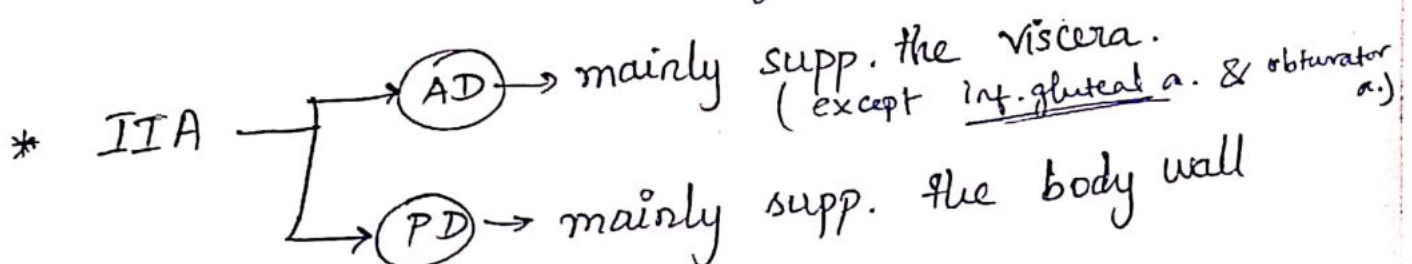 AD → mainly supp. the viscera.
(except inf. gluteal a. & obturator a.)
* IIA
PD → mainly supp. the body wall